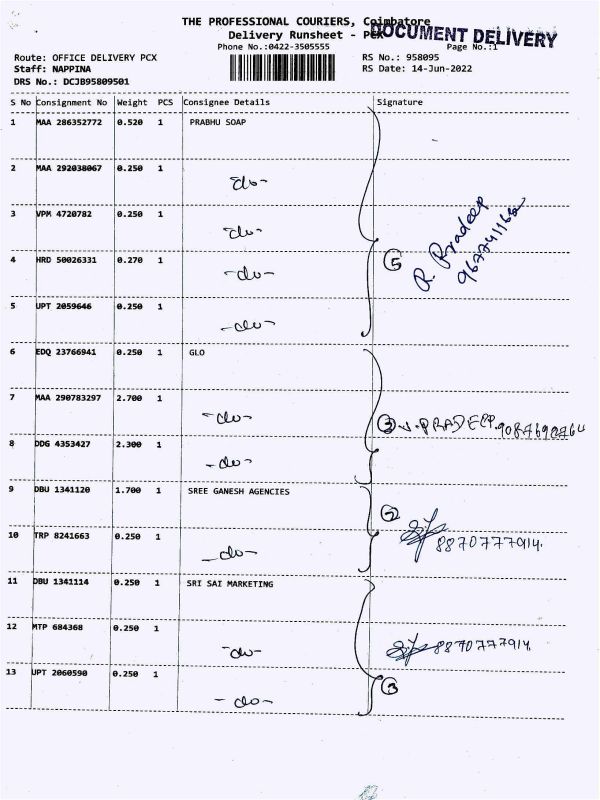 THE PROFESSIONAL COURIERS, Coimbatore
Delivery Runsheet - PCX
DOCUMENT DELIVERY
Phone No.:0422-3505555
Page No.:1
Route: OFFICE DELIVERY PCX
RS No.: 958095
Staff: NAPPINA
RS Date: 14-Jun-2022
DRS No.: DCJB95809501
S No Consignment No Weight PCS Consignee Details Signature
1 MAA 286352772 0.520 1 PRABHU SOAP
2 MAA 292038067 0.250 1 -do-
3 VPM 4720782 0.250 1 -do-
4 HRD 50026331 0.270 1 -do-
5 UPT 2059646 0.250 1 -do-
5 R. Pradeep
6 EDQ 23766941 0.250 1 GLO
7 MAA 290783297 2.700 1 -do-
3 J. PRADEEP
8 DDG 4353427 2.300 1 -do-
9 DBU 1341120 1.700 1 SREE GANESH AGENCIES
2
10 TRP 8241663 0.250 1 -do-
8870777914.
11 DBU 1341114 0.250 1 SRI SAI MARKETING
12 MTP 684368 0.250 1 -do-
8870777914.
13 UPT 2060590 0.250 1 -do-
3